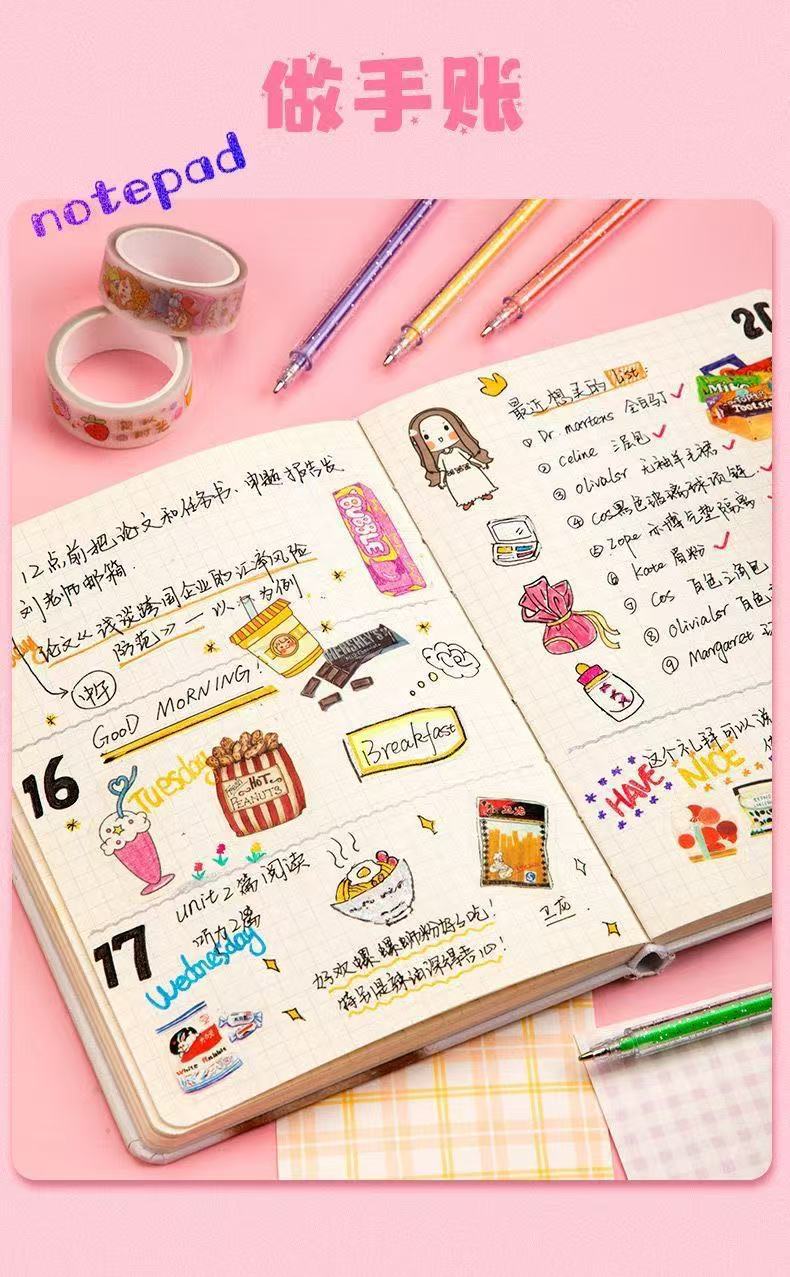 做手账
notepad
12点前把论文和任务书、开题报告发
刘老师邮箱.
论文《浅谈跨国企业的汇率风险
防范》——以 为例
中午
GOOD MORNING!
BUBBLE
HERSHEY'S
Breakfast
16
Tuesday
HOT
PEANUTS
unit 2篇阅读
听力2篇
17
Wednesday
White Rabbit
好欢螺螺蛳粉好好吃!
特别是辣油深得我心!
卫龙
20
最近想买的 list:
① Dr. martens 全自动
② Celine 三层包
③ Olivalsr 无袖羊毛裙
④ Cos黑色玻璃珠项链
⑤ Zope
⑥ Kate 眉粉
⑦ Cos 白色三角包
⑧ Olivialsr 白色
⑨ Margaret
Milk
Tootsie
这个礼拜可以说
HAVE NICE